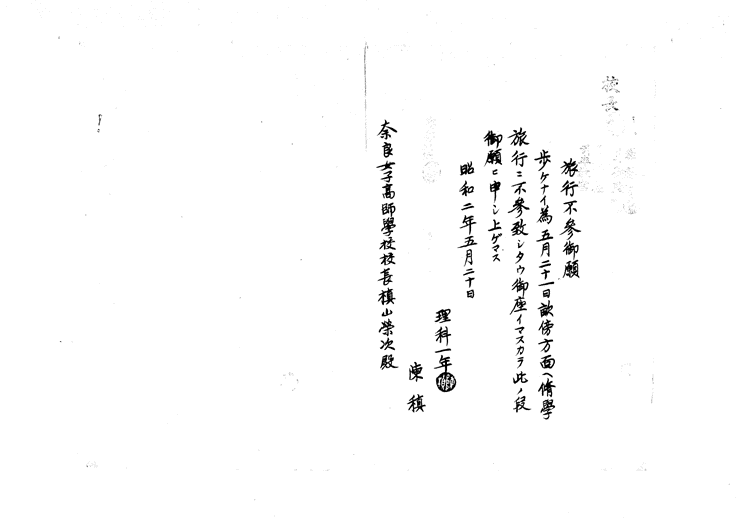 校長
旅行不參御願
歩ケナイ為五月二十一日畝傍方面ヘ脩學
旅行ニ不參致シタウ御座イマスカラ此ノ段
御願ヒ申シ上ゲマス
昭和二年五月二十日
理科一年
陳稹
奈良女子高師學校校長槙山榮次殿